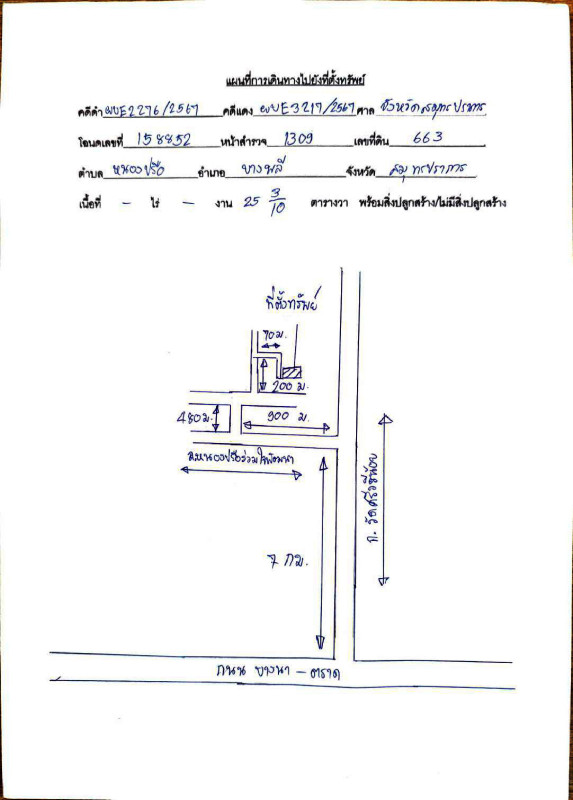 แผนที่การเดินทางไปยังที่ตั้งทรัพย์
คดีดำ ผบE2276/2567 คดีแดง ผบE3217/2567 ศาล จังหวัดสมุทรปราการ
โฉนดเลขที่ 158852 หน้าสำรวจ 1309 เลขที่ดิน 663
ตำบล หนองปรือ อำเภอ บางพลี จังหวัด สมุทรปราการ
เนื้อที่ - ไร่ - งาน 25 3/10 ตารางวา พร้อมสิ่งปลูกสร้าง/ไม่มีสิ่งปลูกสร้าง
ที่ตั้งทรัพย์
70 ม.
200 ม.
480 ม.
900 ม.
ถ.หนองปรือร่วมใจพัฒนา
ถ. วัดศรีวารีน้อย
7 กม.
ถนน บางนา - ตราด